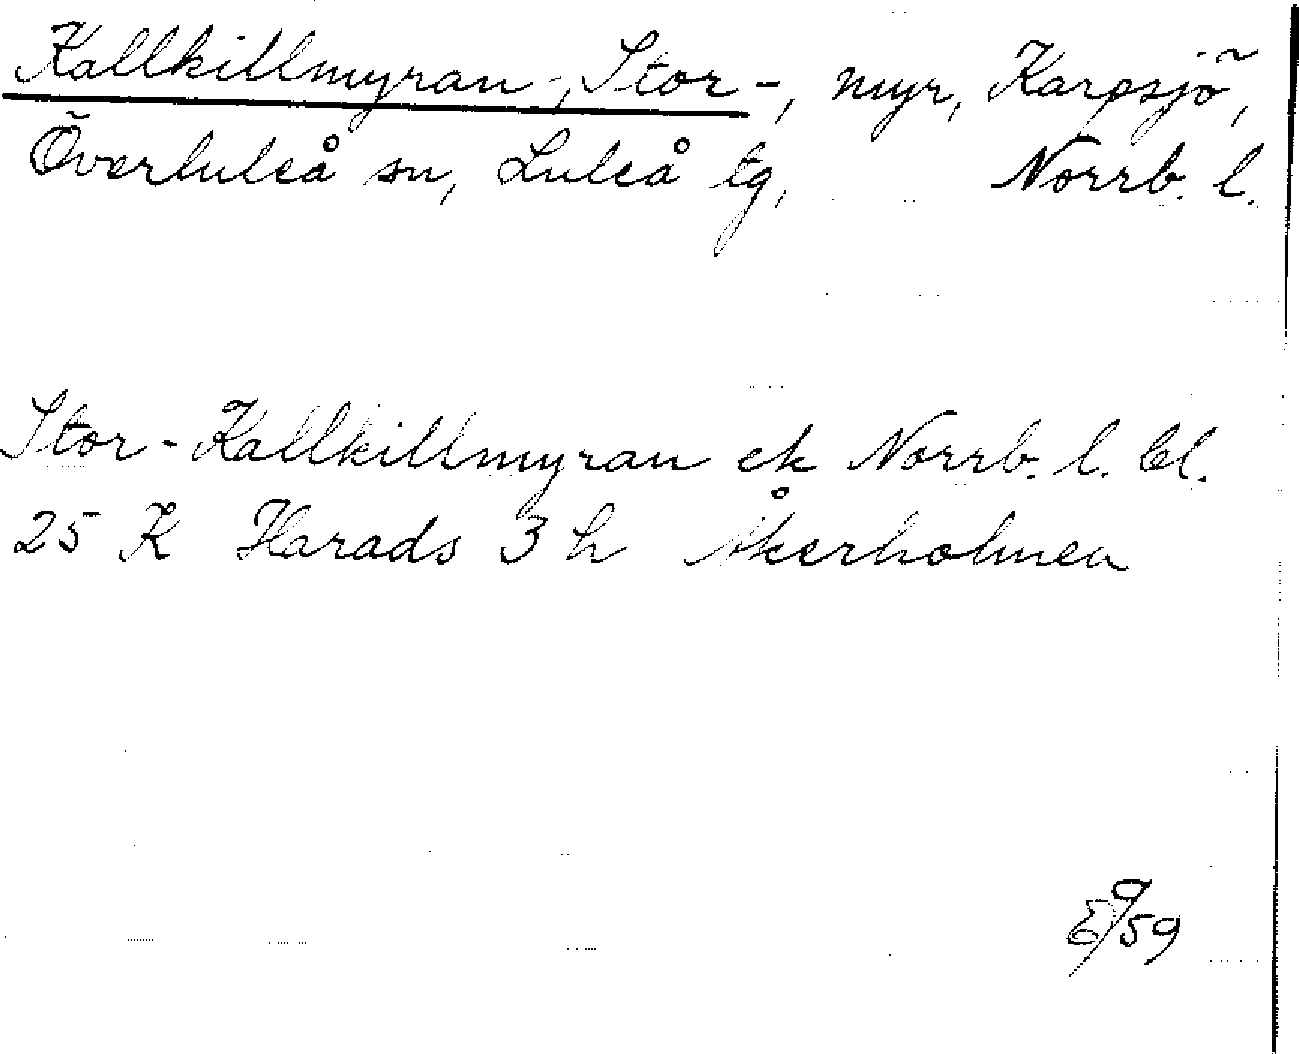 Kallkillmyran-, Stor-, myr, Karpsjö,
Överluleå sn, Luleå tg, Norrb. l.
Stor-Kallkillmyran ek Norrb. l. bl.
25 K Harads 3 h Åkerholmen
9/59